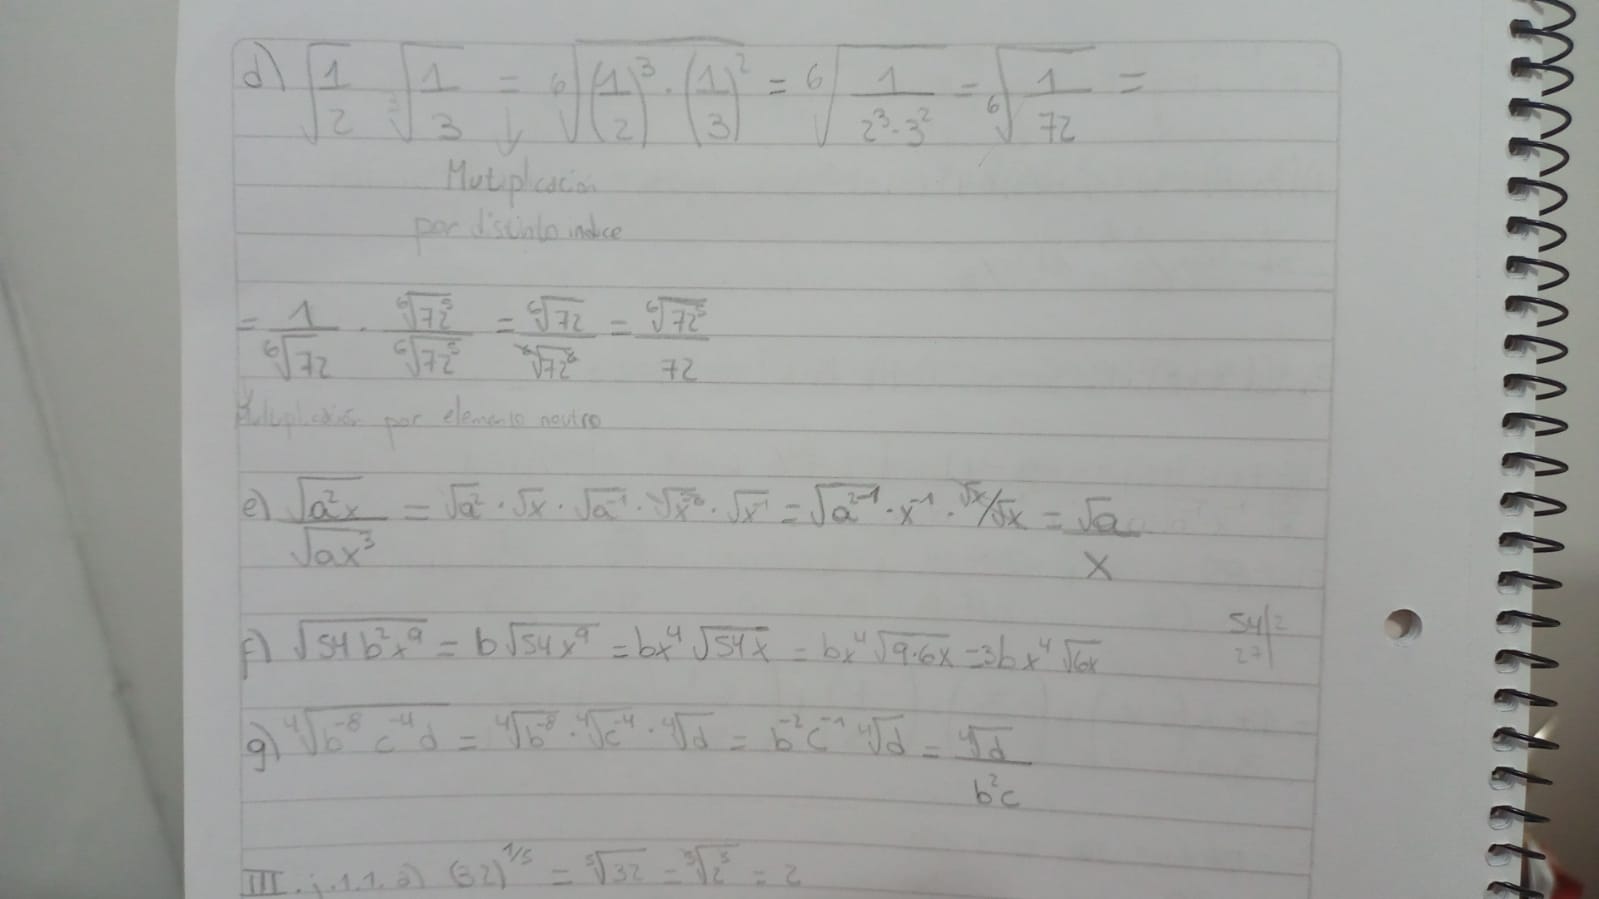 d) √(1/2) ∛(1/3) = ⁶√((1/2)³ · (1/3)²) = ⁶√(1/(2³·3²)) = ⁶√(1/72) =
↓
Mutiplicacion
por distinto indice
= 1/⁶√72 · ⁶√72⁵/⁶√72⁵ = ⁶√72/⁶√72⁶ = ⁶√72⁵/72
Multiplicación por elemento neutro
e) √(a²x)/√(ax³) = √a² · √x · √a⁻¹ · · √x⁻¹ = √a²⁻¹ · x⁻¹ · √x/√x = √a/x
f) √(54b²x⁹) = b√(54x⁹) = bx⁴√(54x) = bx⁴√(9·6x) = 3bx⁴√(6x)
54|2
27|
g) ⁴√(b⁻⁸c⁻⁴d) = ⁴√b⁻⁸ · ⁴√c⁻⁴ · ⁴√d = b⁻²c⁻¹ ⁴√d = ⁴√d/(b²c)
III. j.1.1. a) (32)^1/5 = ⁵√32 = ⁵√2⁵ = 2